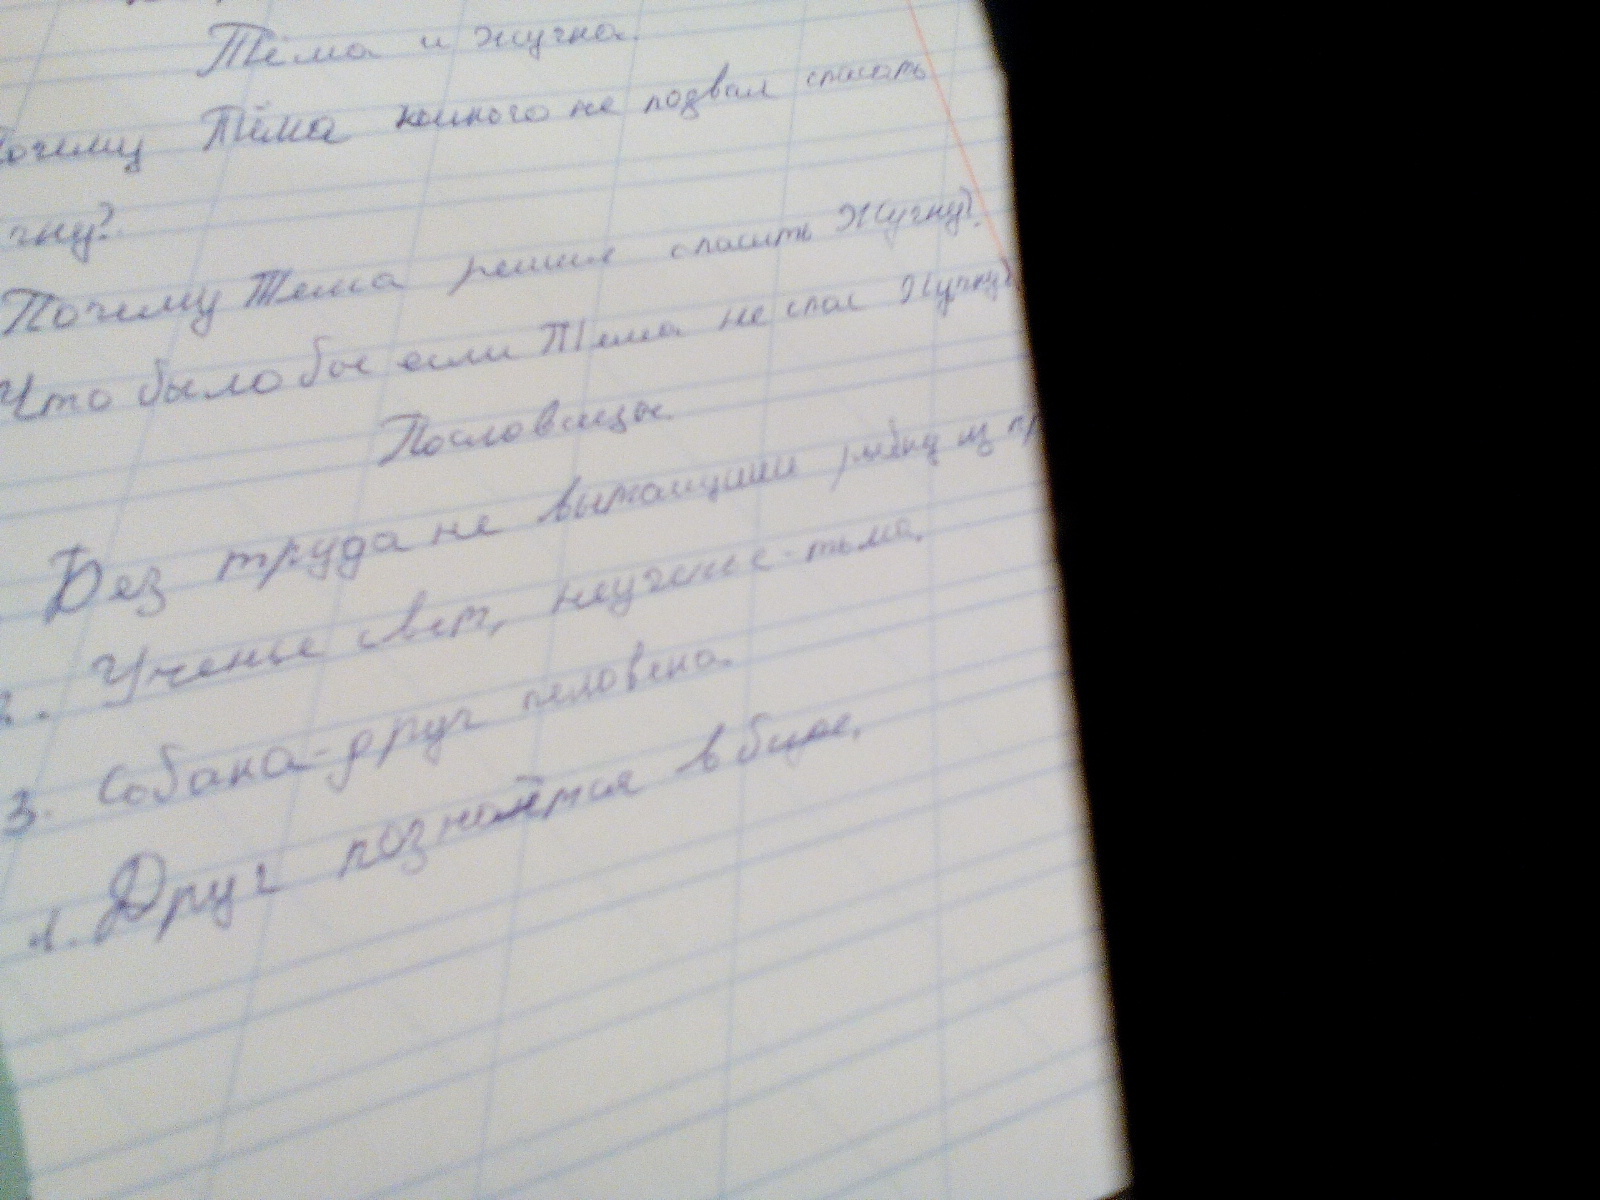 Тёма и жучка.
Почему Тёма никого не подвал спасать
чку?
Почему Тема решил спасить Жучку?
Что было бы если Тема не спас Жучку?
Пословицы.
Без труда не вытащиш рыбку из пр
2. Ученье свет, неученье - тьма.
3. Собака - друг человека.
4. Друг познаётся в беде.